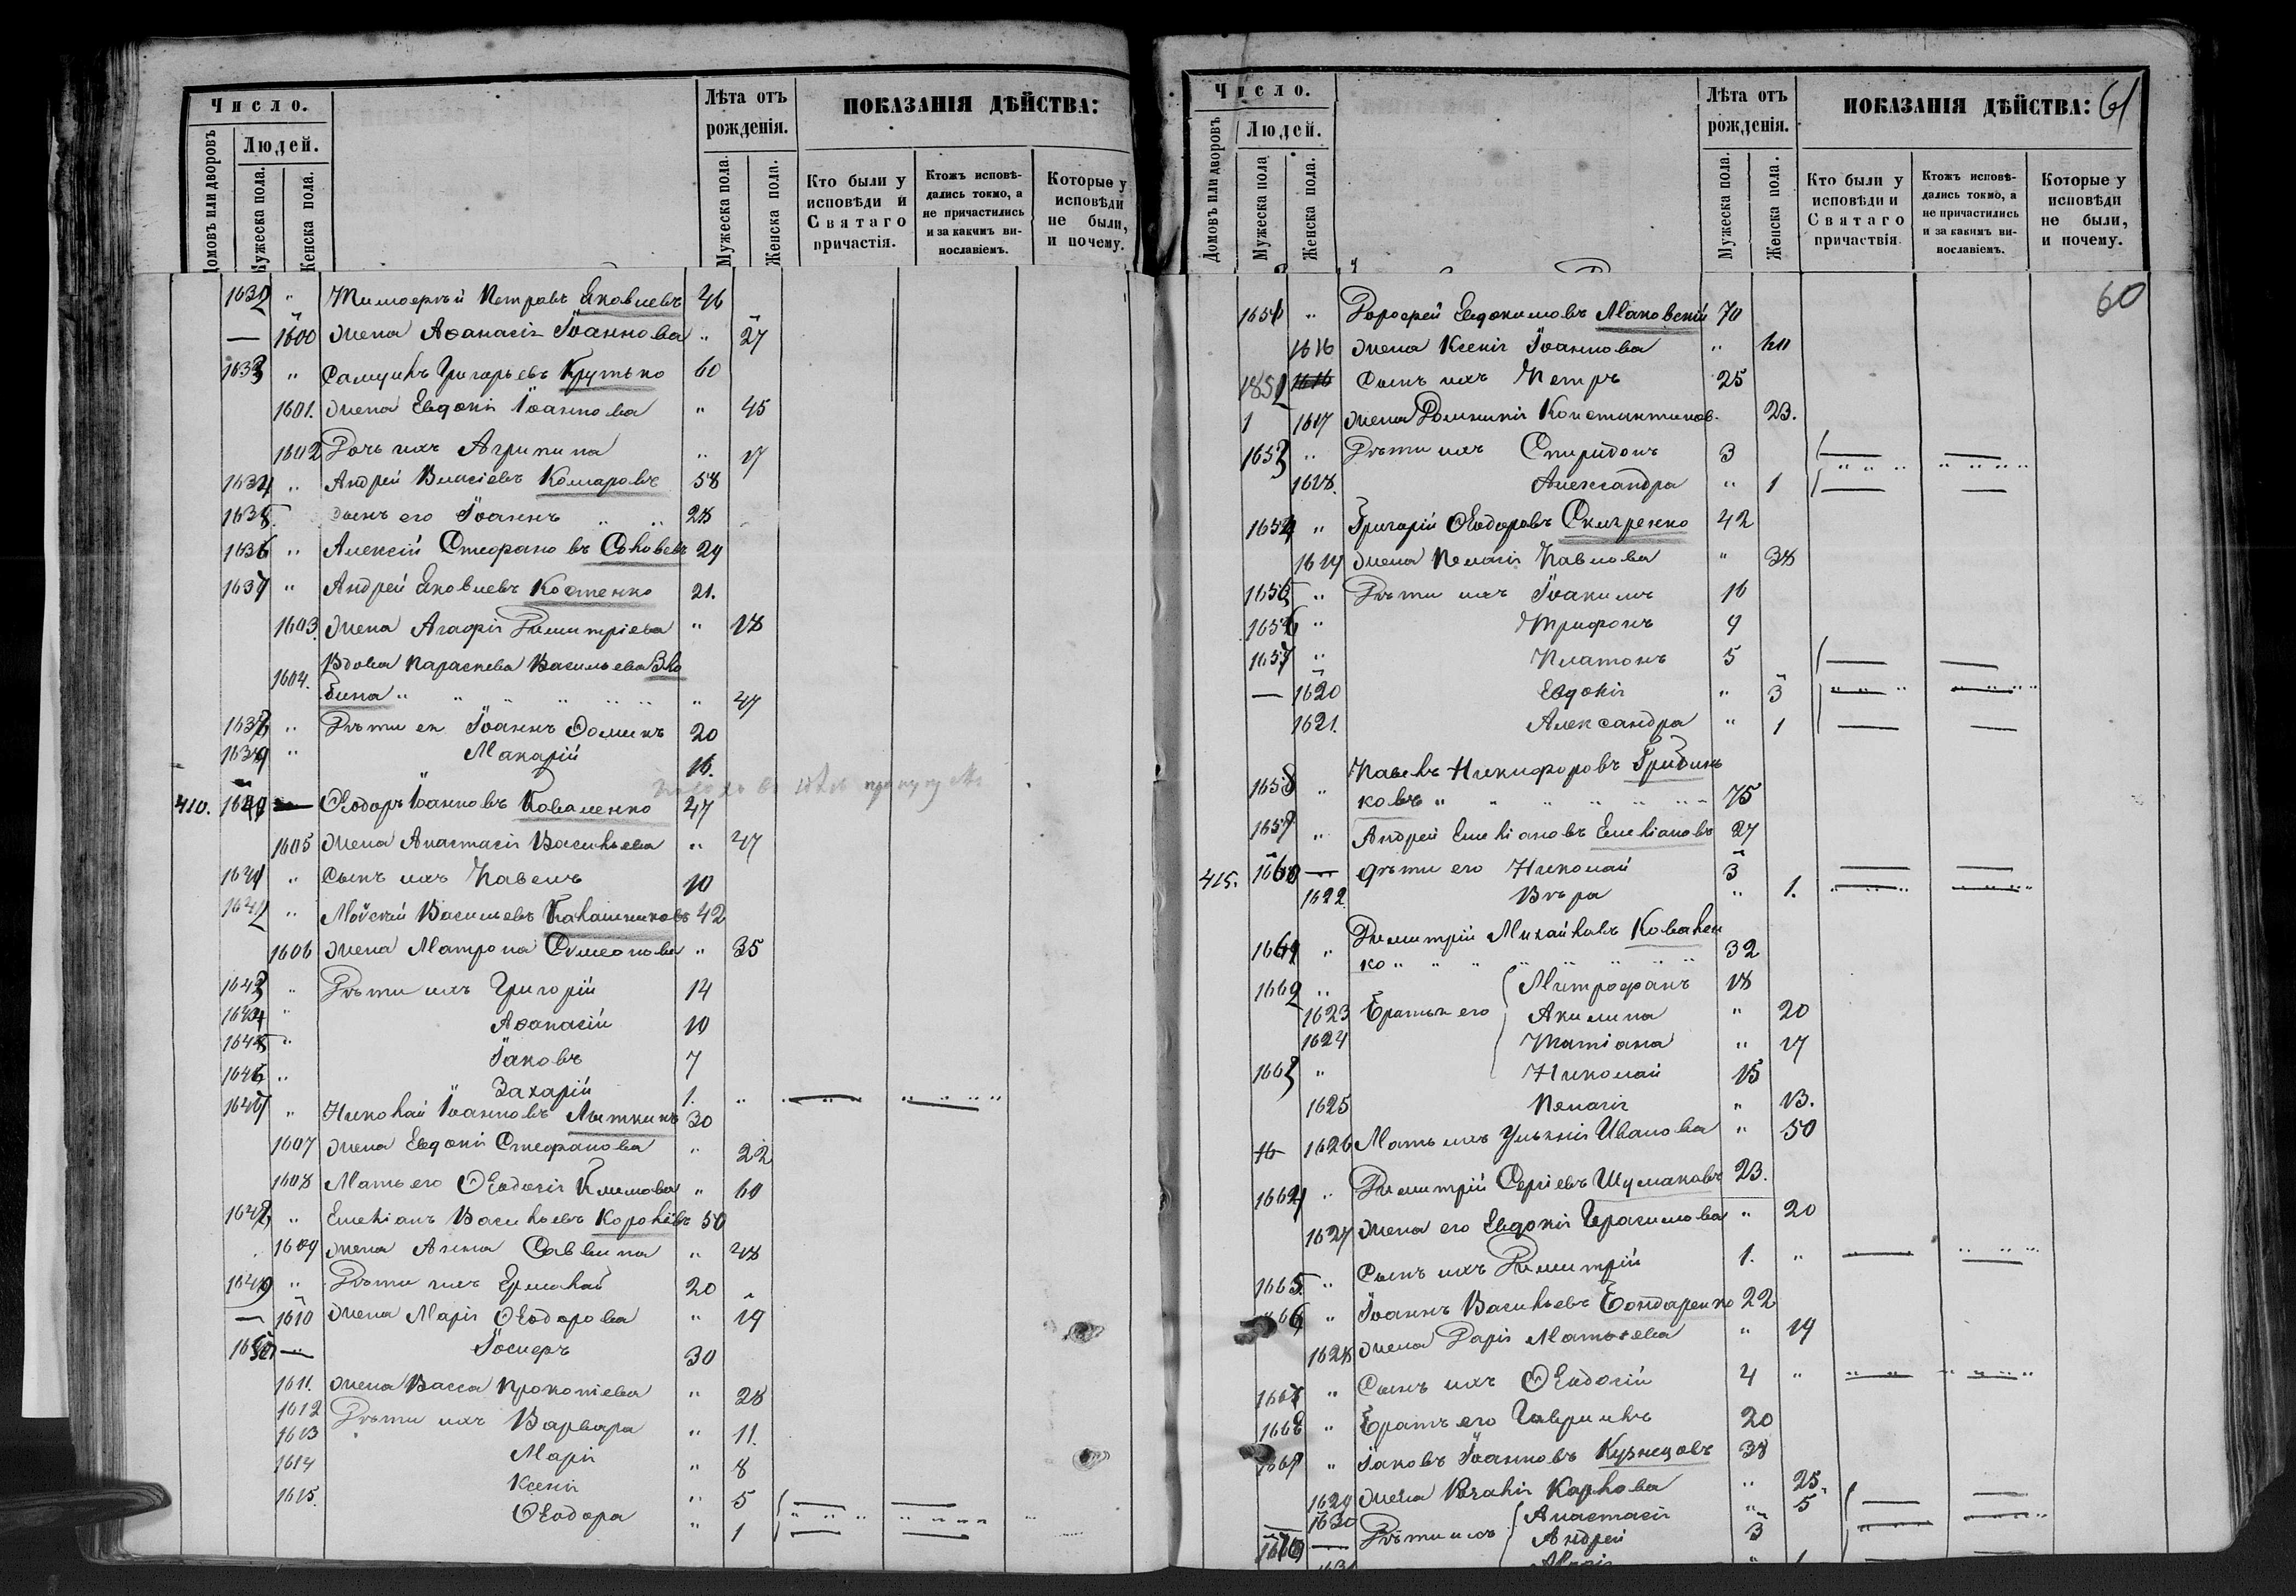 Число.
Людей.
Домовъ или дворовъ
Мужеска пола.
Женска пола.
Лѣта отъ рожденія.
Мужеска пола.
Женска пола.
ПОКАЗАНІЯ ДѢЙСТВА:
Кто были у
исповѣди и
Святаго
причастія.
Ктожъ исповѣ-
дались токмо, а
не причастились
и за какимъ ви-
нословіемъ.
Которые у
исповѣди
не были,
и почему.
1632 " Тимоѳей Петровъ Яковлевъ 46
— 1600 жена Аѳанасія Іоаннова " 27
1633 " Самуилъ Григорьевъ Крутько 60
1601. жена Евдокія Іоаннова " 45
1602 Дочь ихъ Агрипина " 17
1634 " Андрей Власіевъ Комаровъ 58
1635 сынъ его Іоаннъ 28
1636 " Алексій Стефановъ Соловьевъ 29
1637 " Андрей Яковлевъ Костенко 21.
1603. жена Агафія Димитріева " 18
Вдова Параскева Васильева
1604. " 47
1638 " Дѣти ея Іоаннъ 20
1639 " Макарій 16.
410. 1640 — Ѳеодоръ Іоанновъ Коваленко 47
1605 жена Анастасія Васильева " 47
1641 " Сынъ ихъ Павелъ 10
1642 " Мойсей Васильевъ Калашниковъ 42
1606 жена Матрона Симеонова " 35
1643 " Дѣти ихъ Григорій 14
1644 " Аѳанасій 10
1645 " Іаковъ 7
1646 " Захарій 1. "
1647 " Николай Іоанновъ Лыткинъ 30
1607 жена Евдокія Стефанова " 22
1608 Мать его Ѳеодосія Климова " 60
1648 " Емеліанъ Васильевъ Королёвъ 50
1609 жена Анна Саввина " 48
1649 " Дѣти ихъ Ермолай 20
— 1610 жена Марія Ѳеодорова " 19
1650 — Іосифъ 30
1611. жена Васса Прокопіева " 28
1612 Дѣти ихъ Варвара " 11.
1613 Марія " 8
1614 Ксенія " 5
1615. Ѳеодора " 1
Число.
Людей.
Домовъ или дворовъ
Мужеска пола
Женска пола.
Лѣта отъ рожденія.
Мужеска пола.
Женска пола.
ПОКАЗАНІЯ ДѢЙСТВА: 61
Кто были у
исповѣди и
Святаго
причаствія
Ктожъ исповѣ-
дались токмо, а
не причастились
и за какимъ ви-
нословіемъ.
Которые у
исповѣди
не были,
и почему.
60
1651 " Дорофей Евдокимовъ Маковскій 70
1616 жена Ксенія Іоаннова " 60
1652 1616 Сынъ ихъ Петръ 25
1617 жена Домникія Константинов. 23.
1653 " Дѣти ихъ Спиридонъ 3
1618. Александра " 1
1654 " Григорій Ѳеодоровъ 42
1619 жена Пелагія Павлова " 38
1655 " Дѣти ихъ Іоакимъ 16
1656 " Трифонъ 9
1657 " Платонъ 5
— 1620 Евдокія " 3
1621. Александра " 1
Павелъ Никифоровъ Грибин
1658 " ковъ " 75
1659 " Андрей Емеліановъ Емеліановъ 27
415. 1660 — дѣти его Николай 3
1622 Вѣра " 1.
Димитрій Михайловъ Ковален
1661 " ко " 32
1662 " Митрофанъ 18
1623 Братья его Акилина " 20
1624 Татіана " 17
1663 " Николай 15
1625 Пелагія " 13.
16 1626 Мать ихъ Ульянія Иванова " 50
1664 " Димитрій Сергіевъ Шумаковъ 23.
1627 жена его Евдокія Герасимова " 20
1665. " Сынъ ихъ Димитрій 1. "
1666 " Іоаннъ Васильевъ Бондаренко 22
1628 жена Дарія Матѳеева " 19
1667 " Сынъ ихъ Ѳеодосій 4 "
1668 " Братъ его Гавріилъ 20
1669 " Іаковъ Іоанновъ Кузнецовъ 38
1629 жена Карпова " 25.
1630 Дѣти ихъ Анастасія " 5
1670 — Андрей 3
1631 Марія " 1